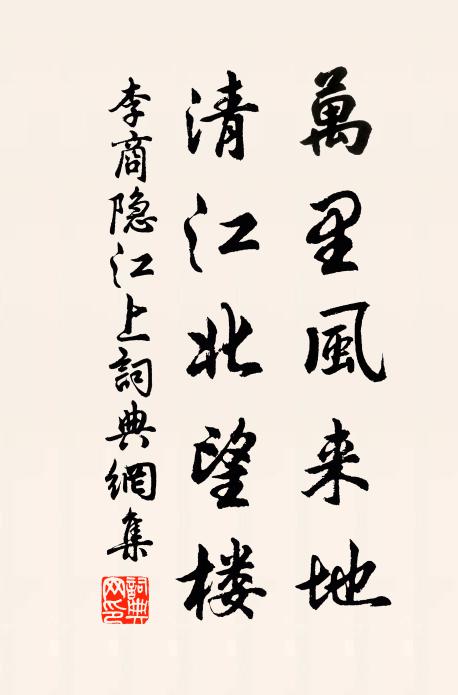 萬里風来地
清江北望楼
李商隐江上詞典網集
詞典網印